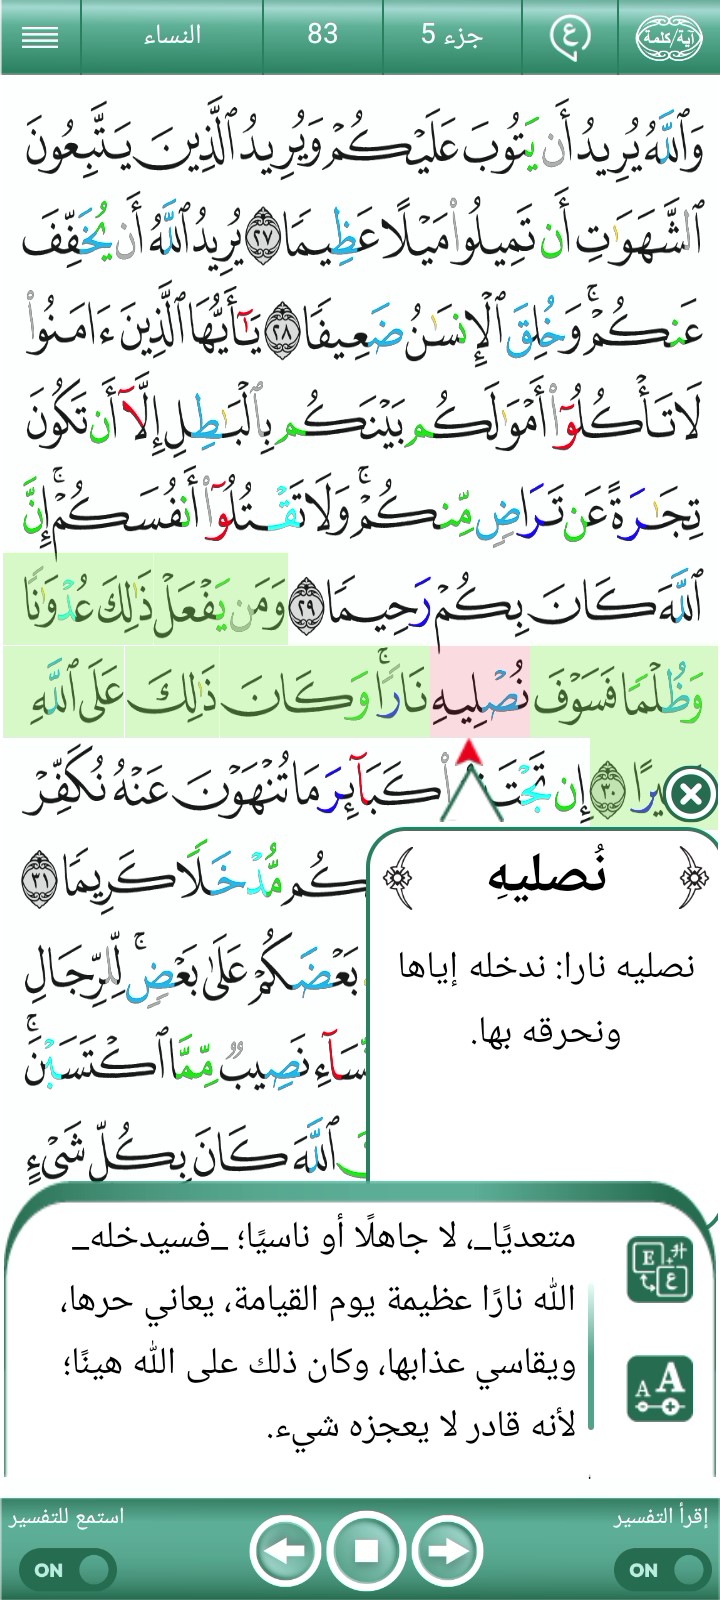 آية/كلمة
ع
جزء 5
83
النساء
وَٱللَّهُ يُرِيدُ أَن يَتُوبَ عَلَيْكُمْ وَيُرِيدُ ٱلَّذِينَ يَتَّبِعُونَ
ٱلشَّهَوَٰتِ أَن تَمِيلُوا۟ مَيْلًا عَظِيمًا ٢٧ يُرِيدُ ٱللَّهُ أَن يُخَفِّفَ
عَنكُمْ ۚ وَخُلِقَ ٱلْإِنسَٰنُ ضَعِيفًا ٢٨ يَٰٓأَيُّهَا ٱلَّذِينَ ءَامَنُوا۟
لَا تَأْكُلُوٓا۟ أَمْوَٰلَكُم بَيْنَكُم بِٱلْبَٰطِلِ إِلَّآ أَن تَكُونَ
تِجَٰرَةً عَن تَرَاضٍ مِّنكُمْ ۚ وَلَا تَقْتُلُوٓا۟ أَنفُسَكُمْ ۚ إِنَّ
ٱللَّهَ كَانَ بِكُمْ رَحِيمًا ٢٩ وَمَن يَفْعَلْ ذَٰلِكَ عُدْوَٰنًا
وَظُلْمًا فَسَوْفَ نُصْلِيهِ نَارًا ۚ وَكَانَ ذَٰلِكَ عَلَى ٱللَّهِ
٣٠ إِن كَبَآئِرَ مَا تُنْهَوْنَ عَنْهُ نُكَفِّرْ
مُّدْخَلًا كَرِيمًا ٣١
بَعْضَكُمْ عَلَىٰ بَعْضٍ ۚ لِّلرِّجَالِ
نَصِيبٌ مِّمَّا ٱكْتَسَبْنَ ۚ
ٱللَّهَ كَانَ بِكُلِّ شَىْءٍ
نُصليهِ
نصليه نارا: ندخله إياها
ونحرقه بها.
متعديًا_، لا جاهلًا أو ناسيًا؛ _فسيدخله_
الله نارًا عظيمة يوم القيامة، يعاني حرها،
ويقاسي عذابها، وكان ذلك على الله هينًا؛
لأنه قادر لا يعجزه شيء.
E
ع
A A
إقرأ التفسير
استمع للتفسير
ON
ON